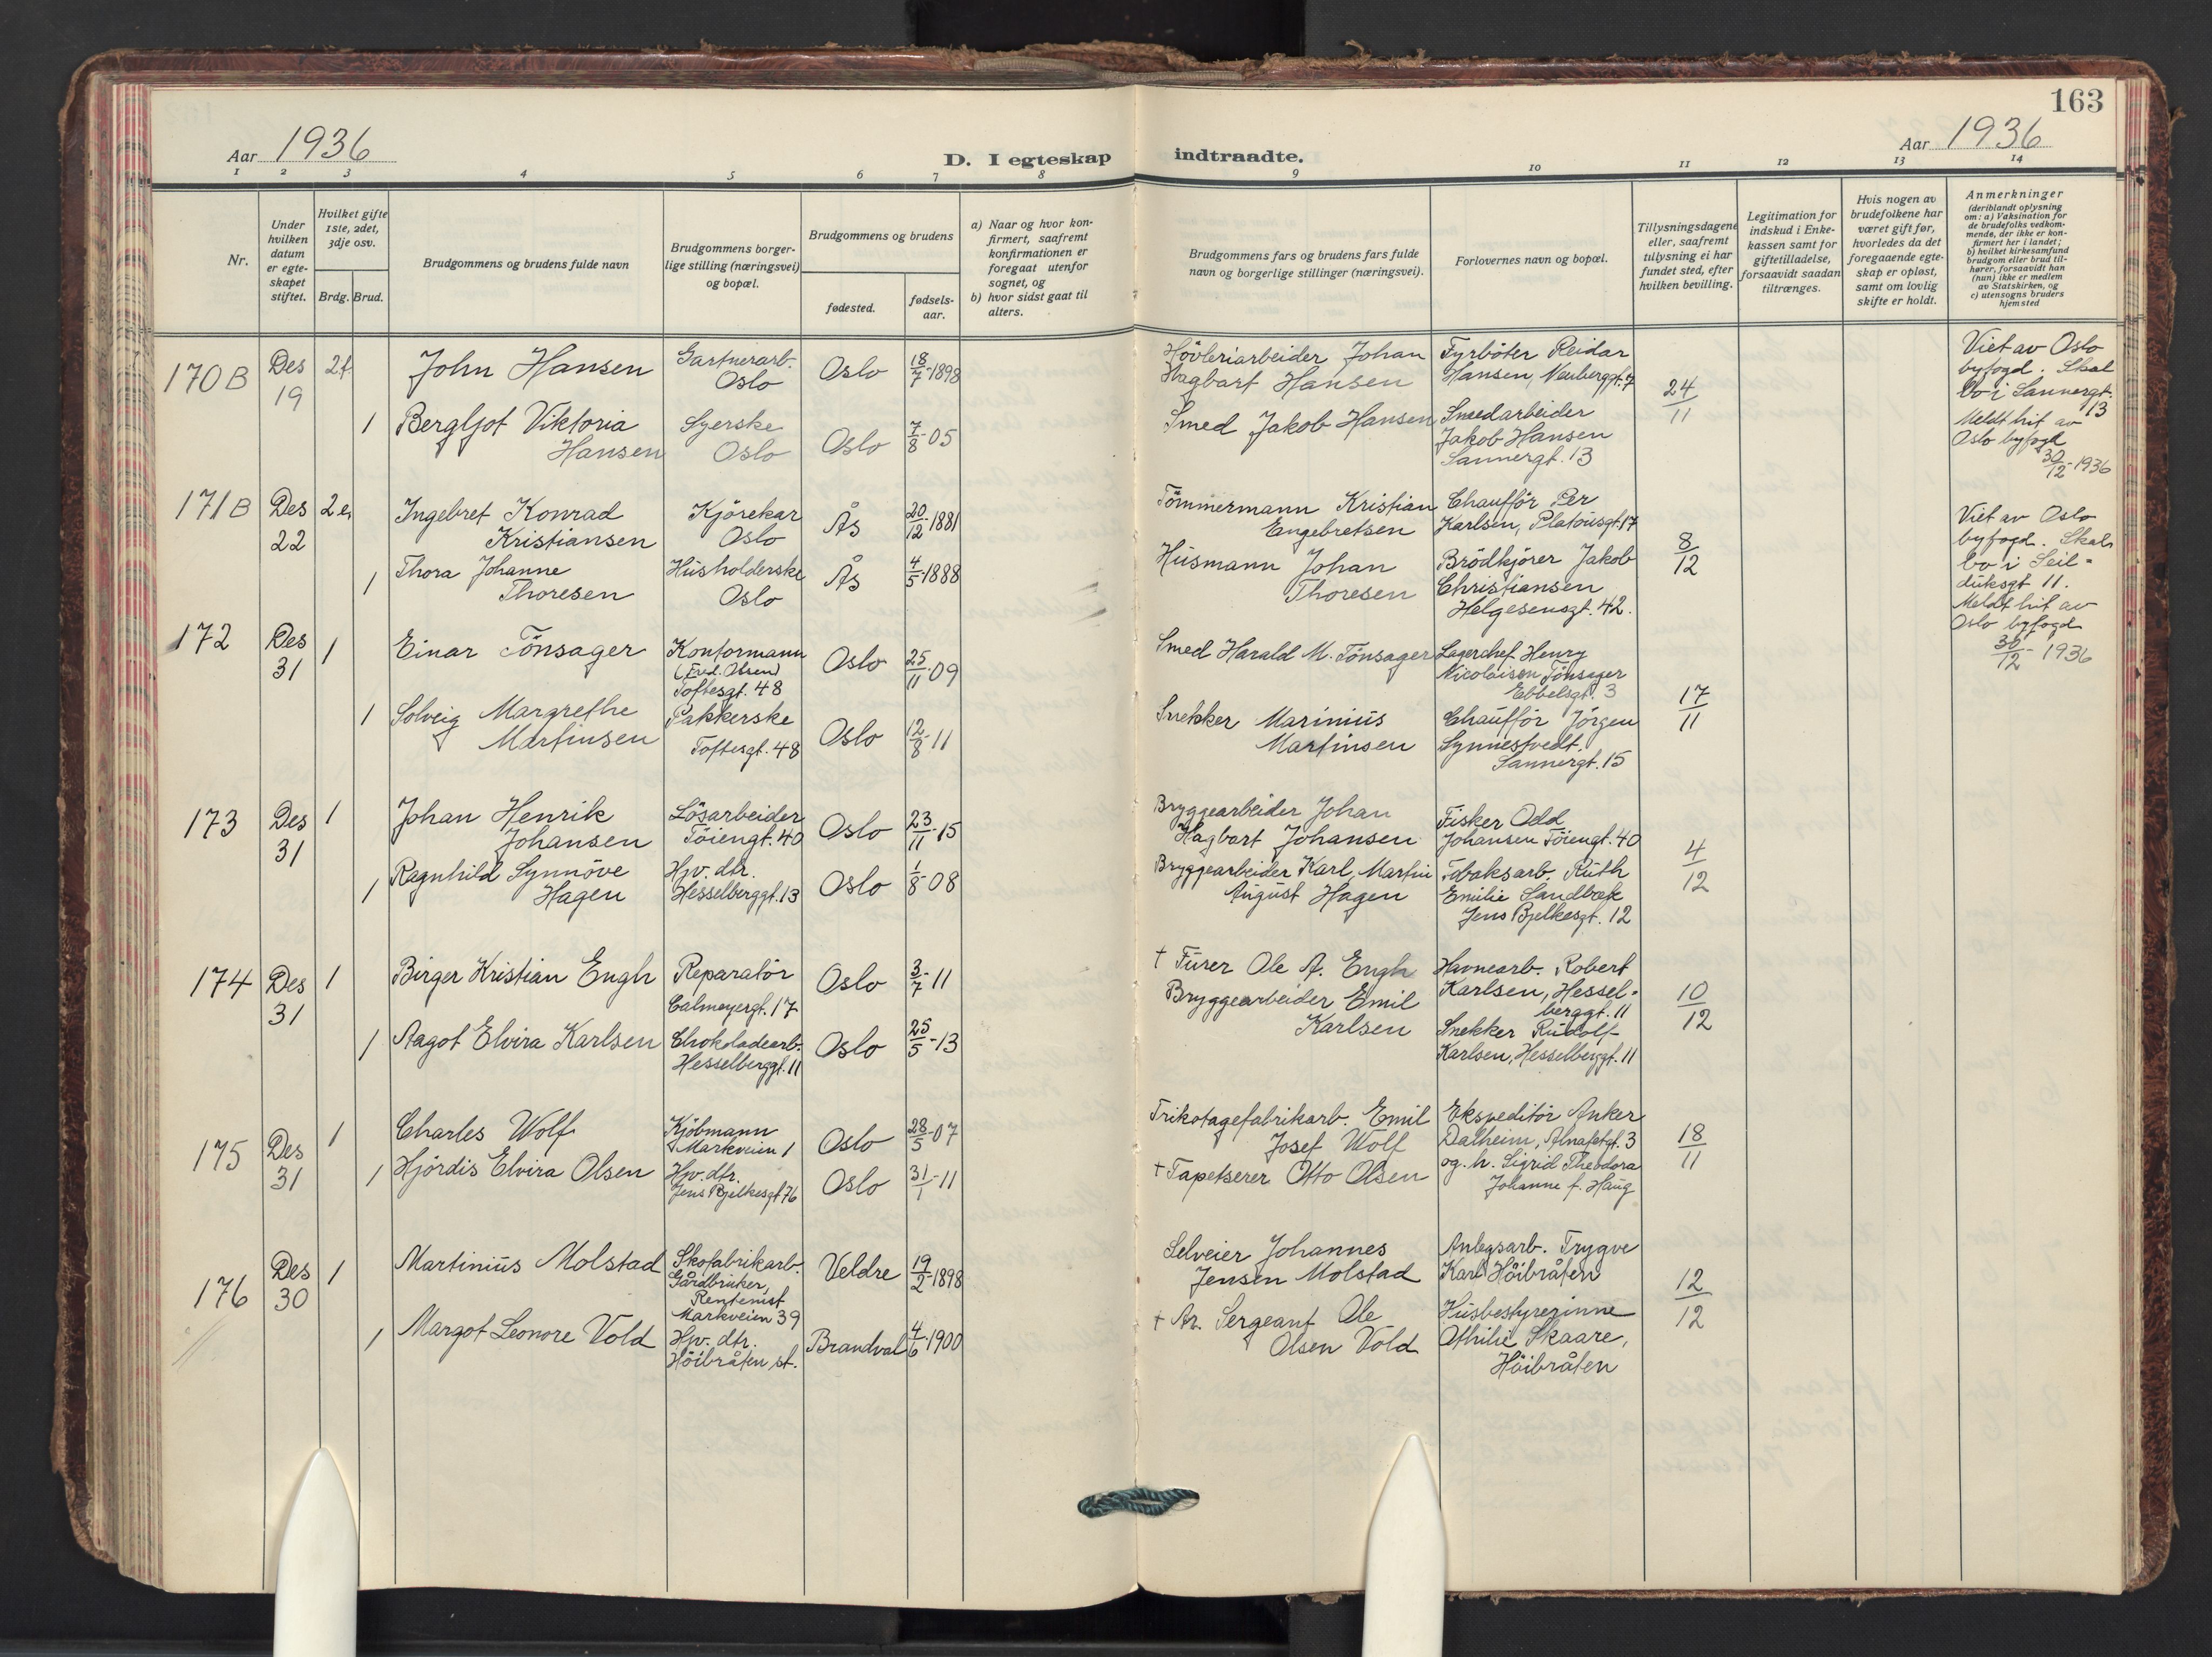 163
Aar 1936
D. I egteskap indtraadte.
Aar 1936
1 2 3 4 5 6 7 8 9 10 11 12 13 14
Nr.
Under hvilken datum er egteskapet stiftet.
Hvilket gifte 1ste, 2det, 3dje osv.
Brdg. Brud.
Brudgommens og brudens fulde navn
Brudgommens borgerlige stilling (næringsvei) og bopæl.
Brudgommens og brudens
fødested.
fødselsaar.
a) Naar og hvor konfirmert, saafremt konfirmationen er foregaat utenfor sognet, og
b) hvor sidst gaat til alters.
Brudgommens fars og brudens fars fulde navn og borgerlige stillinger (næringsvei).
Forlovernes navn og bopæl.
Tillysningsdagene eller, saafremt tillysning ei har fundet sted, efter hvilken bevilling.
Legitimation for indskud i Enkekassen samt for giftetilladelse, forsaavidt saadan tiltrænges.
Hvis nogen av brudefolkene har været gift før, hvorledes da det foregaaende egteskap er opløst, samt om lovlig skifte er holdt.
Anmerkninger
(deriblandt oplysning om: a) Vaksination for de brudefolks vedkommende, der ikke er konfirmert her i landet;
b) hvilket kirkesamfund brudgom eller brud tilhører, forsaavidt han (hun) ikke er medlem av Statskirken, og
c) utensogns bruders hjemsted
170 B
Des 19
2 f.
John Hansen
Gartnerarb.
Oslo
Oslo
18/7-1898
Hövleriarbeider Johan
Hagbart Hansen
Fyrböter Reidar
Hansen, Neuberggt. 7
24/11
Viet av Oslo
byfogd. Skal
bo i Sannergt.
13
Meldt hit av
Oslo byfogd
30/12-1936
1
Bergljot Viktoria
Hansen
Syerske
Oslo
Oslo
7/8-05
Smed Jakob Hansen
Smedarbeider
Jakob Hansen
Sannergt. 13
171 B
Des 22
2 e.
Ingebret Konrad
Kristiansen
Kjörekar
Oslo
Ås
20/12-1881
Tömmermann Kristian
Engebretsen
Chaufför Per
Karlsen, Platousgt. 17
8/12
Viet av Oslo
byfogd. Skal
bo i Seil=
duksgt 11.
Meldt hit av
Oslo byfogd
30/12-1936
1
Thora Johanne
Thoresen
Husholderske
Oslo
Ås
4/5-1888
Husmann Johan
Thoresen
Brödkjörer Jakob
Christiansen
Helgesensgt. 42.
172
Des 31
1
Einar Tönsager
Kontormann
(Fred. Olsen)
Toftesgt. 48
Oslo
25/11-09
Smed Harald M. Tönsager
Lagerchef Henry
Nicolaisen Tönsager
Ebbelsgt. 3
17/11
1
Solveig Margrethe
Martinsen
Pakkerske
Toftesgt. 48
Oslo
12/8-11
Snekker Marinius
Martinsen
Chaufför Jörgen
Synnestvedt.
Sannergt. 15
173
Des 31
1
Johan Henrik
Johansen
Lösarbeider
Töiengt. 40
Oslo
23/11-15
Bryggearbeider Johan
Hagbart Johansen
Fisker Odd
Johansen Töiengt. 40
4/12
1
Ragnhild Synnöve
Hagen
Hjv. dtr.
Hesselberggt. 13
Oslo
1/8-08
Bryggearbeider Karl Martin
August Hagen
Tobaksarb. Ruth
Emilie Sandbæk
Jens Bjelkesgt. 12
174
Des 31
1
Birger Kristian Engh
Reparatör
Calmeyergt. 17
Oslo
3/7-11
† Furer Ole A. Engh
Havnearb. Robert
Karlsen, Hessel=
berggt. 11
10/12
1
Aagot Elvira Karlsen
Chokoladearb.
Hesselberggt. 11
Oslo
25/5-13
Bryggearbeider Emil
Karlsen
Snekker Rudolf
Karlsen, Hesselberggt. 11
175
Des 31
1
Charles Wolf
Kjöbmann
Markveien 1
Oslo
28/5-07
Trikotagefabrikarb. Emil
Josef Wolf
Ekspeditör Anker
Dalheim, Alnafetgt. 3
18/11
1
Hjördis Elvira Olsen
Hjv. dtr.
Jens Bjelkesgt 76
Oslo
31/1-11
† Tapetserer Otto Olsen
og h. Sigrid Theodora
Johanne f. Haug
176
Des 30
1
Martinius Molstad
Skofabrikarb.
Gårdbruker,
Rentenist
Markveien 39
Veldre
19/2-1898
Selveier Johannes
Jensen Molstad
Anlegsarb. Trygve
Karl Höibråten
12/12
1
Margot Leonore Vold
Hjv. dtr.
Höibråten st.
Brandval
4/6-1900
† Ar. Sergeant Ole
Olsen Vold
Husbestyrerinne
Othilie Skaare,
Höibråten